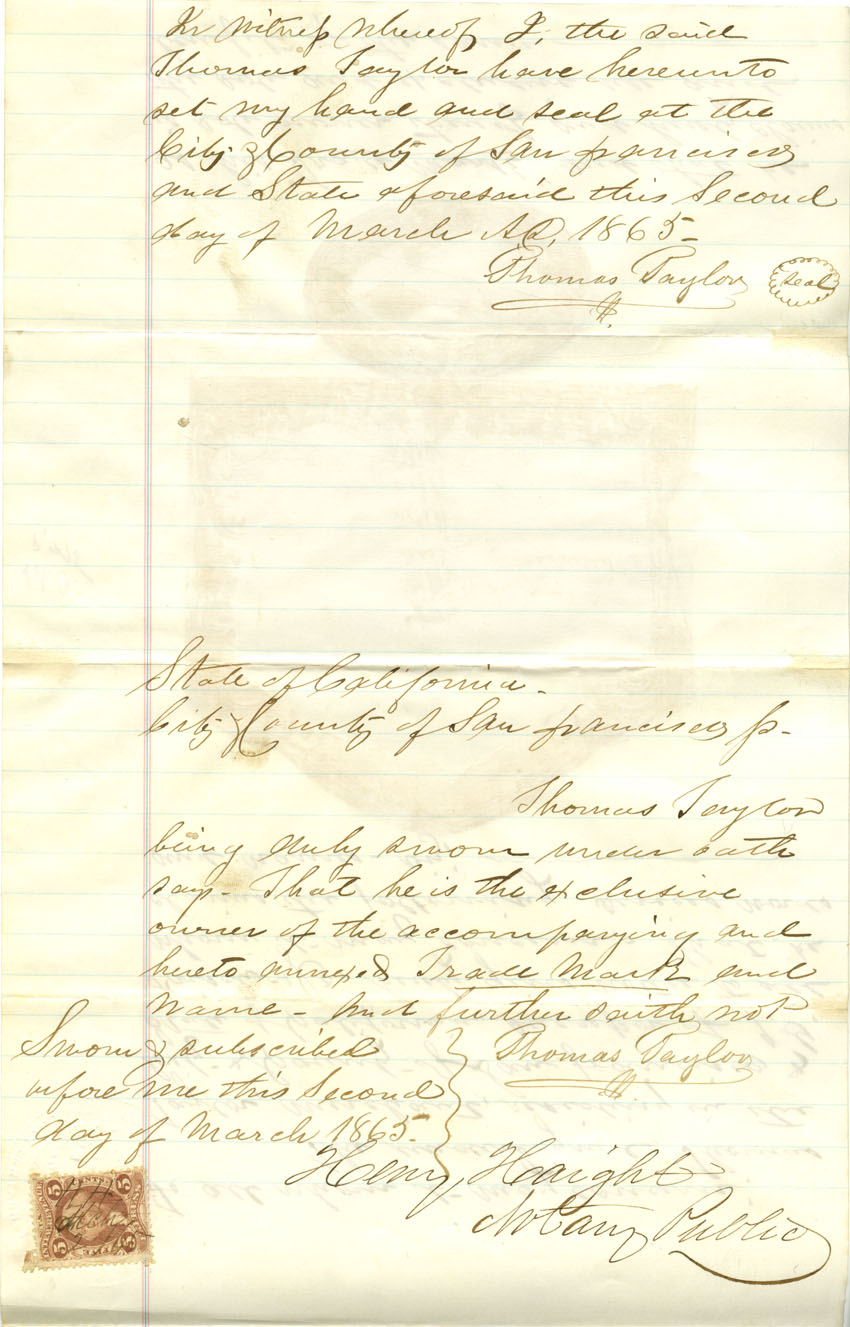 In Witness Whereof I, the said
Thomas Taylor have hereunto
set my hand and seal at the
City & County of San francisco
and State aforesaid this Second
day of March A.D. 1865-
Thomas Taylor
Seal
State of California -
City & County of San francisco ss-
Thomas Taylor
being duly sworn under oath
says - That he is the exclusive
owner of the accompanying and
hereto annexed Trade Mark and
Name - And further saith not
Thomas Taylor
Sworn & subscribed
before me this Second
day of March 1865.
Henry Haight
Notary Public
5 5
5 5